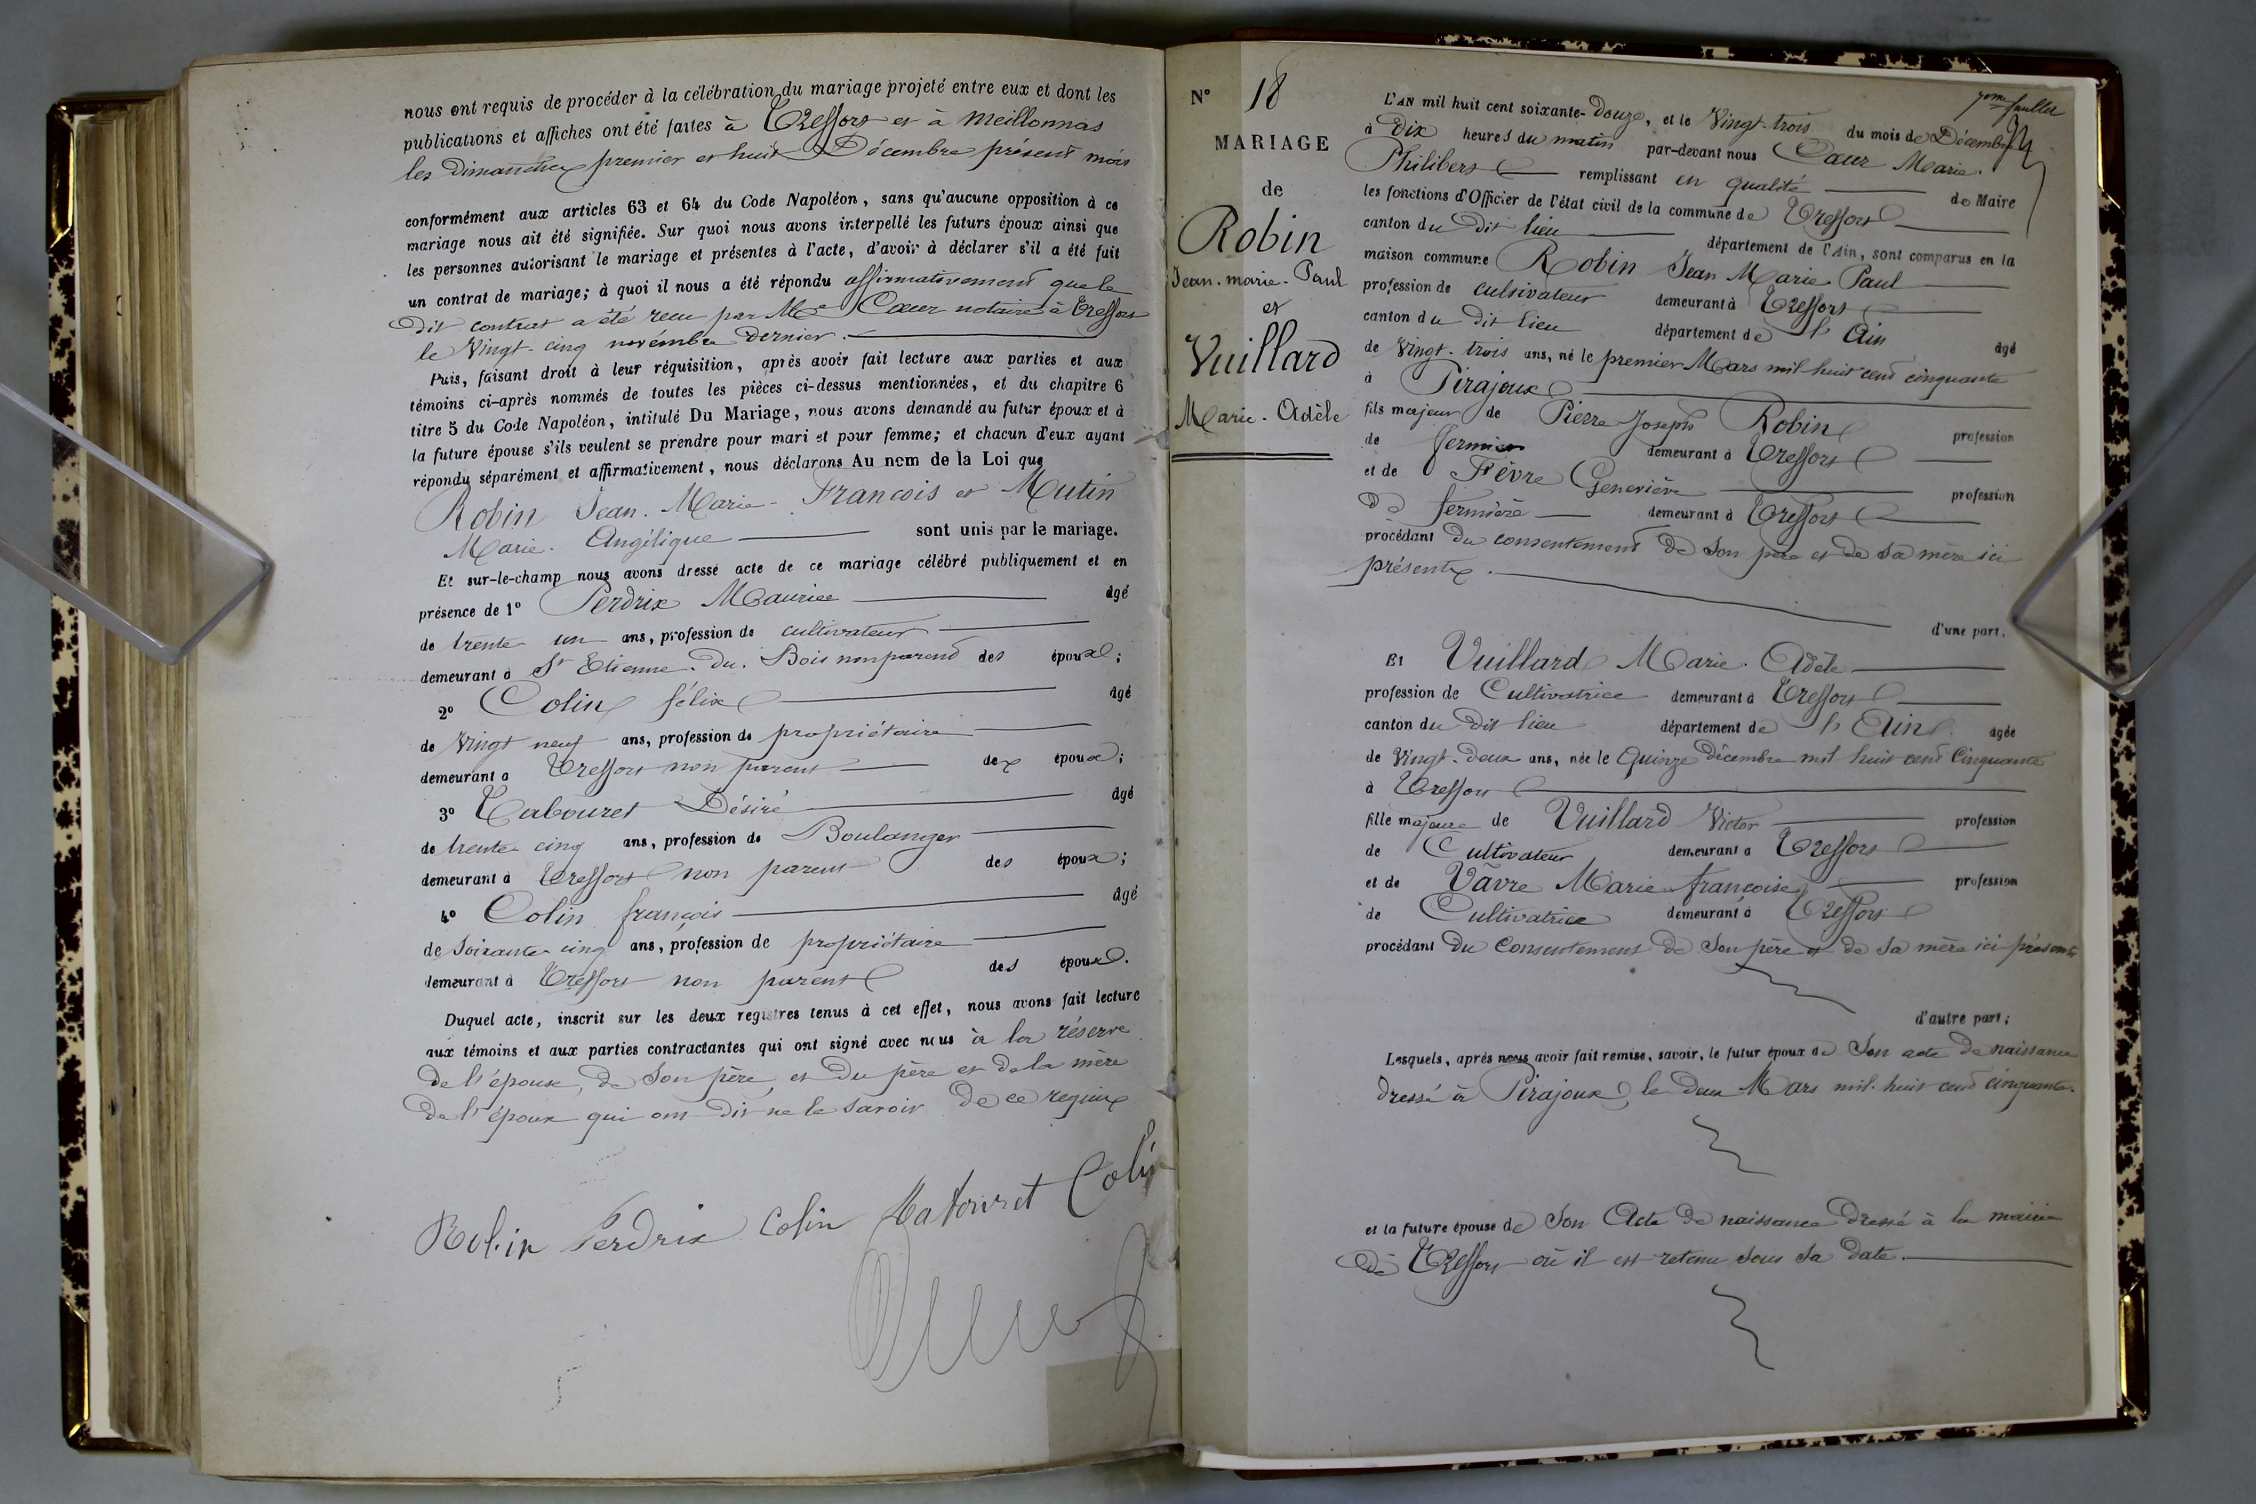 nous ont requis de procéder à la célébration du mariage projeté entre eux et dont les
publications et affiches ont été faites à Treffort et à Meillonnas
les dimanches premier et huit Décembre présent mois
conformément aux articles 63 et 64 du Code Napoléon, sans qu'aucune opposition à ce
mariage nous ait été signifiée. Sur quoi nous avons interpellé les futurs époux ainsi que
les personnes autorisant le mariage et présentes à l'acte, d'avoir à déclarer s'il a été fait
un contrat de mariage; à quoi il nous a été répondu affirmativement que le
dit contrat a été recu par Me Coeur notaire à Treffort
le Vingt-cinq novémbre dernier.
Puis, faisant droit à leur réquisition, après avoir fait lecture aux parties et aux
témoins ci-après nommés de toutes les pièces ci-dessus mentionnées, et du chapitre 6
titre 5 du Code Napoléon, intitulé Du Mariage, nous avons demandé au futur époux et à
la future épouse s'ils veulent se prendre pour mari et pour femme; et chacun d'eux ayant
répondu séparément et affirmativement, nous déclarons Au nom de la Loi que
Robin Jean-Marie-François et Mutin
Marie-Angélique sont unis par le mariage.
Et sur-le-champ nous avons dressé acte de ce mariage célébré publiquement et en
présence de 1° Perdrix Maurice âgé
de trente un ans, profession de cultivateur
demeurant à St Etienne-du-Bois non parent des époux;
2° Colin félix âgé
de Vingt neuf ans, profession de propriétaire
demeurant à Treffort non parent des époux;
3° Tabouret Désiré âgé
de trente cinq ans, profession de Boulanger
demeurant à Treffort non parent des époux;
4° Colin françois âgé
de soixante cinq ans, profession de propriétaire
demeurant à Treffort non parent des époux.
Duquel acte, inscrit sur les deux registres tenus à cet effet, nous avons fait lecture
aux témoins et aux parties contractantes qui ont signé avec nous à la réserve
de l'épouse, de son père et du père et de la mère
de l'époux qui ont dit ne le savoir de ce requis
Robin Perdrix Colin Tabouret Colin
N° 18
MARIAGE
de
Robin
Jean-marie-Paul
et
Vuillard
Marie-Adèle
L'AN mil huit cent soixante-Douze, et le Vingt-trois du mois de Décembre
à Dix heures du matin par-devant nous Coeur Marie
Philibert remplissant en qualité de Maire
les fonctions d'Officier de l'état civil de la commune de Treffort
canton du dit lieu département de l'Ain, sont comparus en la
maison commune Robin Jean Marie Paul
profession de cultivateur demeurant à Treffort
canton du dit lieu département de l'Ain âgé
de Vingt-trois ans, né le premier Mars mil huit cent cinquante
à Pirajoux
fils majeur de Pierre Joseph Robin profession
de fermier demeurant à Treffort
et de Fèvre Geneviève profession
de fermière demeurant à Treffort
procédant du consentement de son père et de sa mère ici
présents.
d'une part.
Et Vuillard Marie-Adèle
profession de Cultivatrice demeurant à Treffort
canton du dit lieu département de l'Ain âgée
de Vingt-deux ans, née le Quinze décembre mil huit cent Cinquante
à Treffort
fille majeure de Vuillard Victor profession
de Cultivateur demeurant à Treffort
et de Vavre Marie françoise profession
de Cultivatrice demeurant à Treffort
procédant du Consentement de son père et de sa mère ici présents
d'autre part;
Lesquels, après nous avoir fait remise, savoir, le futur époux de Son acte de naissance
dressé à Pirajoux, le deux Mars mil-huit cent cinquante.
et la future épouse de Son Acte de naissance dressé à la mairie
de Treffort où il est retenu sous sa date.